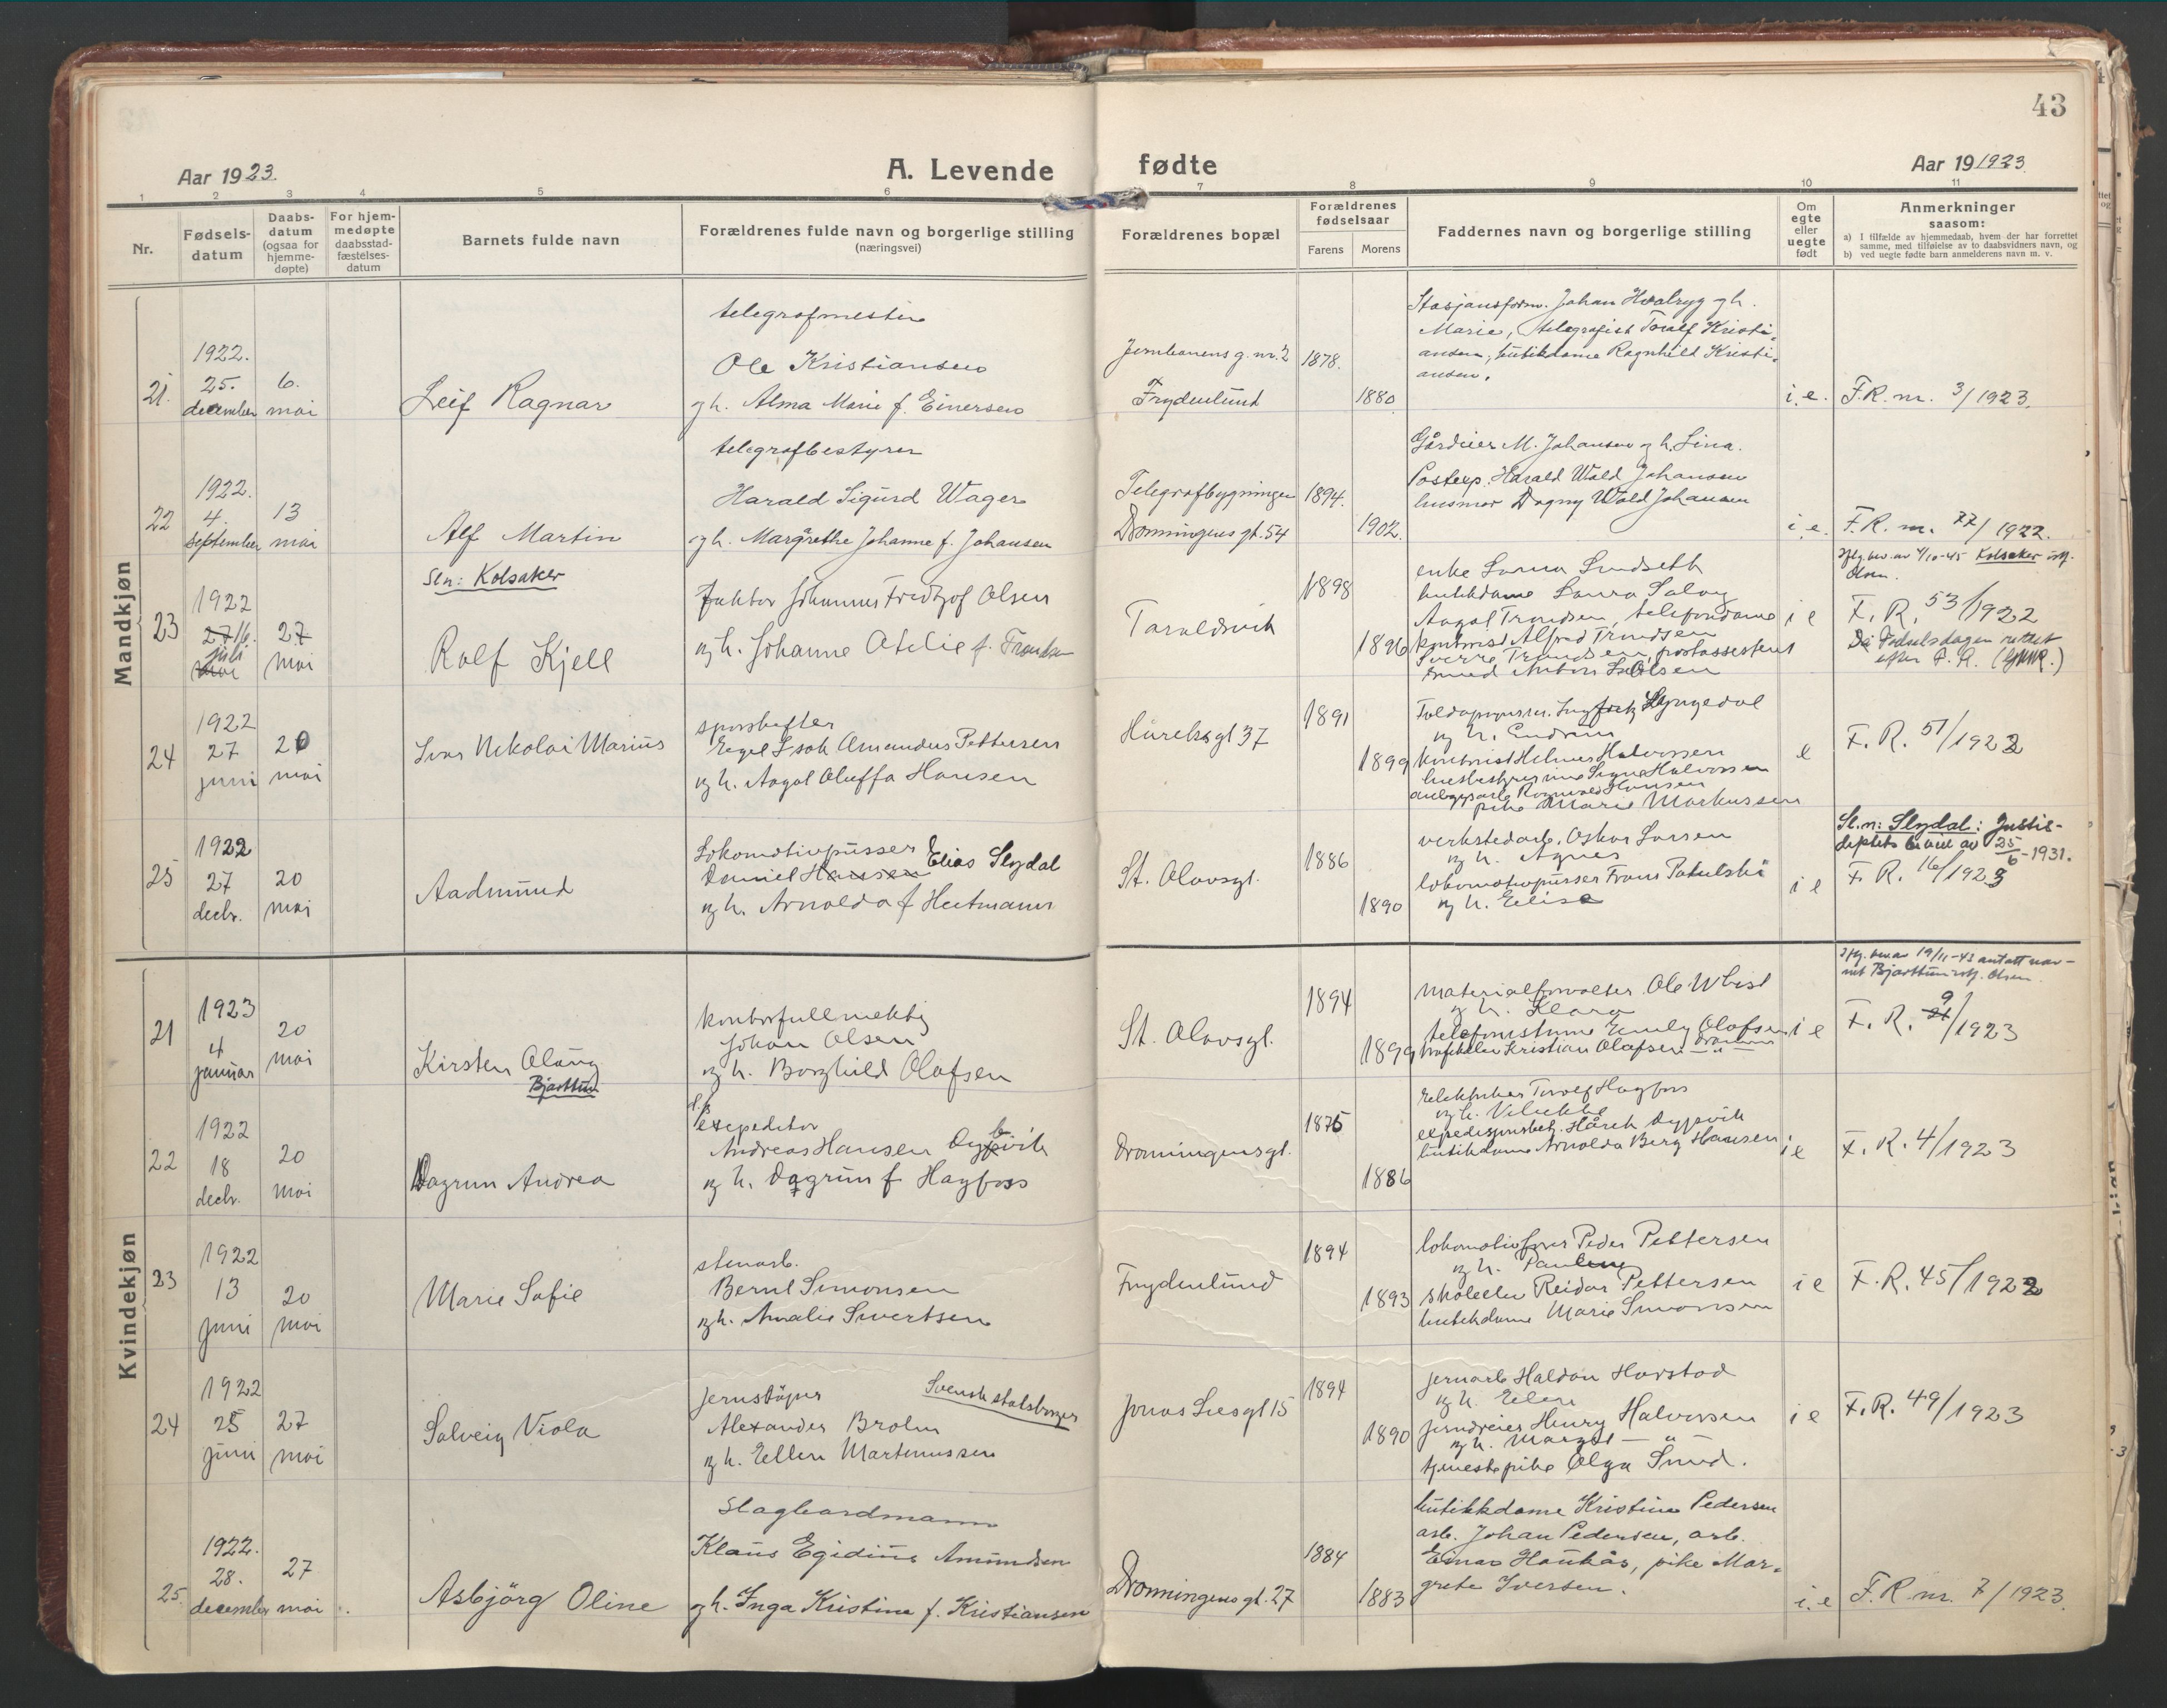 43
Aar 1923.
A. Levende fødte
Aar 19 1923.
1 2 3 4 5 6 7 8 9 10 11
Nr.
Fødsels-
datum
Daabs-
datum
(ogsaa for
hjemme-
døpte)
For hjem-
medøpte
daabsstad-
fæstelses-
datum
Barnets fulde navn
Forældrenes fulde navn og borgerlige stilling
(næringsvei)
Forældrenes bopæl
Forældrenes
fødselsaar
Farens Morens
Faddernes navn og borgerlige stilling
Om
egte
eller
uegte
født
Anmerkninger
saasom:
a) I tilfælde av hjemmedaab, hvem der har forrettet
samme, med tilføielse av to daabsvidners navn, og
b) ved uegte fødte barn anmelderens navn m. v.
Mandkjøn
21.
1922.
25.
december
6.
mai
Leif Ragnar
telegrafmester
Ole Kristiansen
og h. Alma Marie f. Einersen
Jernbanens g. nr. 2
Frydenlund
1878.
1880
Stasjonsform. Johan Hvalryg og h.
Marie, telegrafist Toralf Kristi-
ansen, butikdame Ragnhild Kristi-
ansen.
i. e.
F.R. nr. 3/1923.
22
1922.
4.
september
13
mai
Alf Martin
telegrafbestyrer
Harald Sigurd Wager
og h. Margrethe Johanne f. Johansen
Telegrafbygningen
Dronningens gt. 54
1894.
1902.
Gårdeier M. Johansen og h. Lina.
Postexp. Harald Wold Johansen
husmor Dagny Wold Johansen
i. e.
F.R. nr. 77/1922.
23
1922
27 16.
juli
mai
27
mai
Sln: Kolsaker
Rolf Kjell
Faktor Johannes Fredtjof Olsen
og h. Johanne Otelie f. Trondsen
Taraldsvik
1898
1896
enke Lorna Lundseth
butikdame Laura Solberg
Aagot Trondsen, telefondame
kontorist Alfred Trondsen
Sverre Trondsen, postassistent
i e
Iflg. bev. av 4/10-45 Kolsaker istf.
Olsen.
F. R. 53/1922
Fødselsdagen rettet
efter F. R.
24
1922
27
juni
20
mai
Ivar Nikolai Marius
sporskifter
Eigel Isak Amandus Pettersen
og h. Aagot Oluffa Hansen
Håreksgt 37
1891
1899
Lyngedal
kontorist Helmer Halvorsen
husbestyrerinne Signe Halvorsen
anlegsarb. Ragnvald Hansen
pike Marie Markussen
e
F. R. 51/1922
25
1922
27
decbr.
20
mai
Aadmund
Lokomotivpusser Elias Slydal
Daniel Hansen
og h. Arnolda f Heitmann
St. Olavsgt.
1886
1890
verkstedarb. Oskar Larsen
og h. Agnes
lokomotivpusser Frans Pakulski
og h. Elise
i e
Sl.n: Slydal: Justis-
deptets bevil av 25/6-1931.
F. R. 16/1923
Kvindekjøn
21
1923
4
januar
20
mai
Kirsten Olaug
Bjarttun
kontorfullmektig
Johan Olsen
og h. Borghild Olafsen
St. Olavsgt.
1894
1899
materialforvalter Ole Wbist
og h. Klara
telefonistinne Emily Olafsen
Kristian Olafsen
i e
Iflg. bev. av 19/11-43 antatt nav-
net Bjarttun istf. Olsen.
F. R. 9/1923
22
1922
18
decbr.
20
mai
Dagrun Andrea
expeditør
Andreas Hansen Dypvik
og h. Dagrun f Hagfoss
Dronningensgt.
1875
1886
elektriker Torolf Hagfoss
og h. Vibekke
expedisjonsbet. Hårek Dypvik
butikdame Arnolda Berg Hansen
i e
F. R. 4/1923
23
1922
13
juni
20
mai
Marie Sofie
stenarb.
Bernt Simonsen
og h. Amalie Sivertsen
Frydenlund
1894
1893
lokomotivfører Peder Pettersen
og h. Pauline
skoleelev Reidar Pettersen
butikdame Marie Simonsen
i e
F. R. 45/1922
24
1922
25
juni
27
mai
Solveig Viola
jernstöper
Svensk statsborger
Alexander Brolin
og h. Ellen Martinussen
Jonas Liesgt 15
1894
1890
jernarb Haldan Harstad
og h. Ellen
jerndreier Henry Halvorsen
og h. Margit — " —
tjenestepike Olga Smud.
i e
F. R. 49/1923
25.
1922.
28.
december
27
mai
Asbjörg Oline
Slagbordmann
Klaus Egidius Amundsen
og h. Inga Kristine f. Kristiansen
Dronningens gt. 27
1884
1883
butikkdame Kristine Pedersen
arb. Johan Pedersen, arb.
Einar Haukås, pike Mar-
grete Iversen.
i. e
F. R. nr. 7/1923.